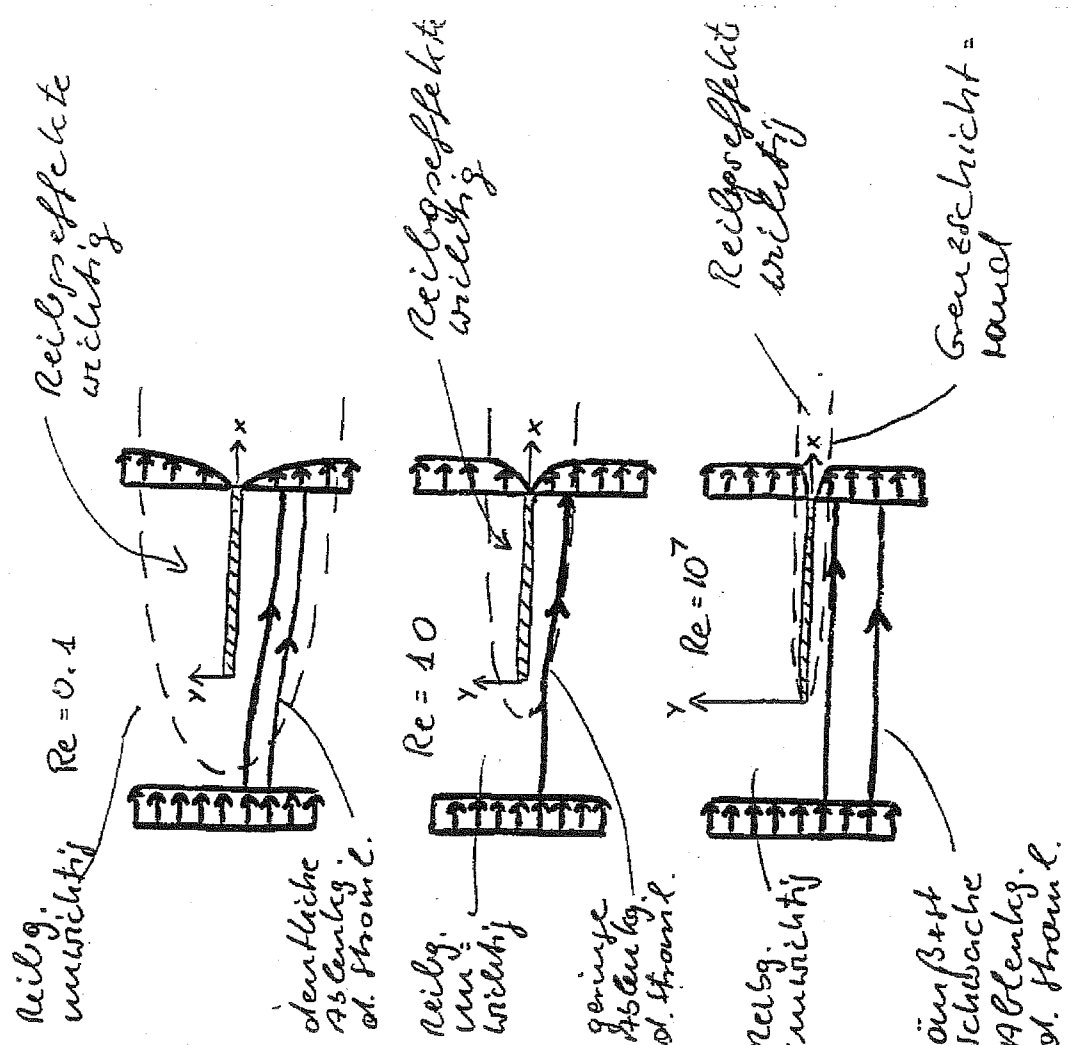 Reibg.
unwichtig
Re = 0.1
Reibgseffekte
wichtig
Y
X
deutliche
Ablenkg
d. Stroml.
Reibg.
un=
wichtig
Re = 10
Reibgseffekte
wichtig
Y
X
geringe
Ablenkg.
d. Stroml.
Reibg
unwichtig
Re = 10⁷
Reibgseffekt
wichtig
Y
X
Grenzschicht=
rand
äußerst
schwache
Ablenkg.
d. Stroml.